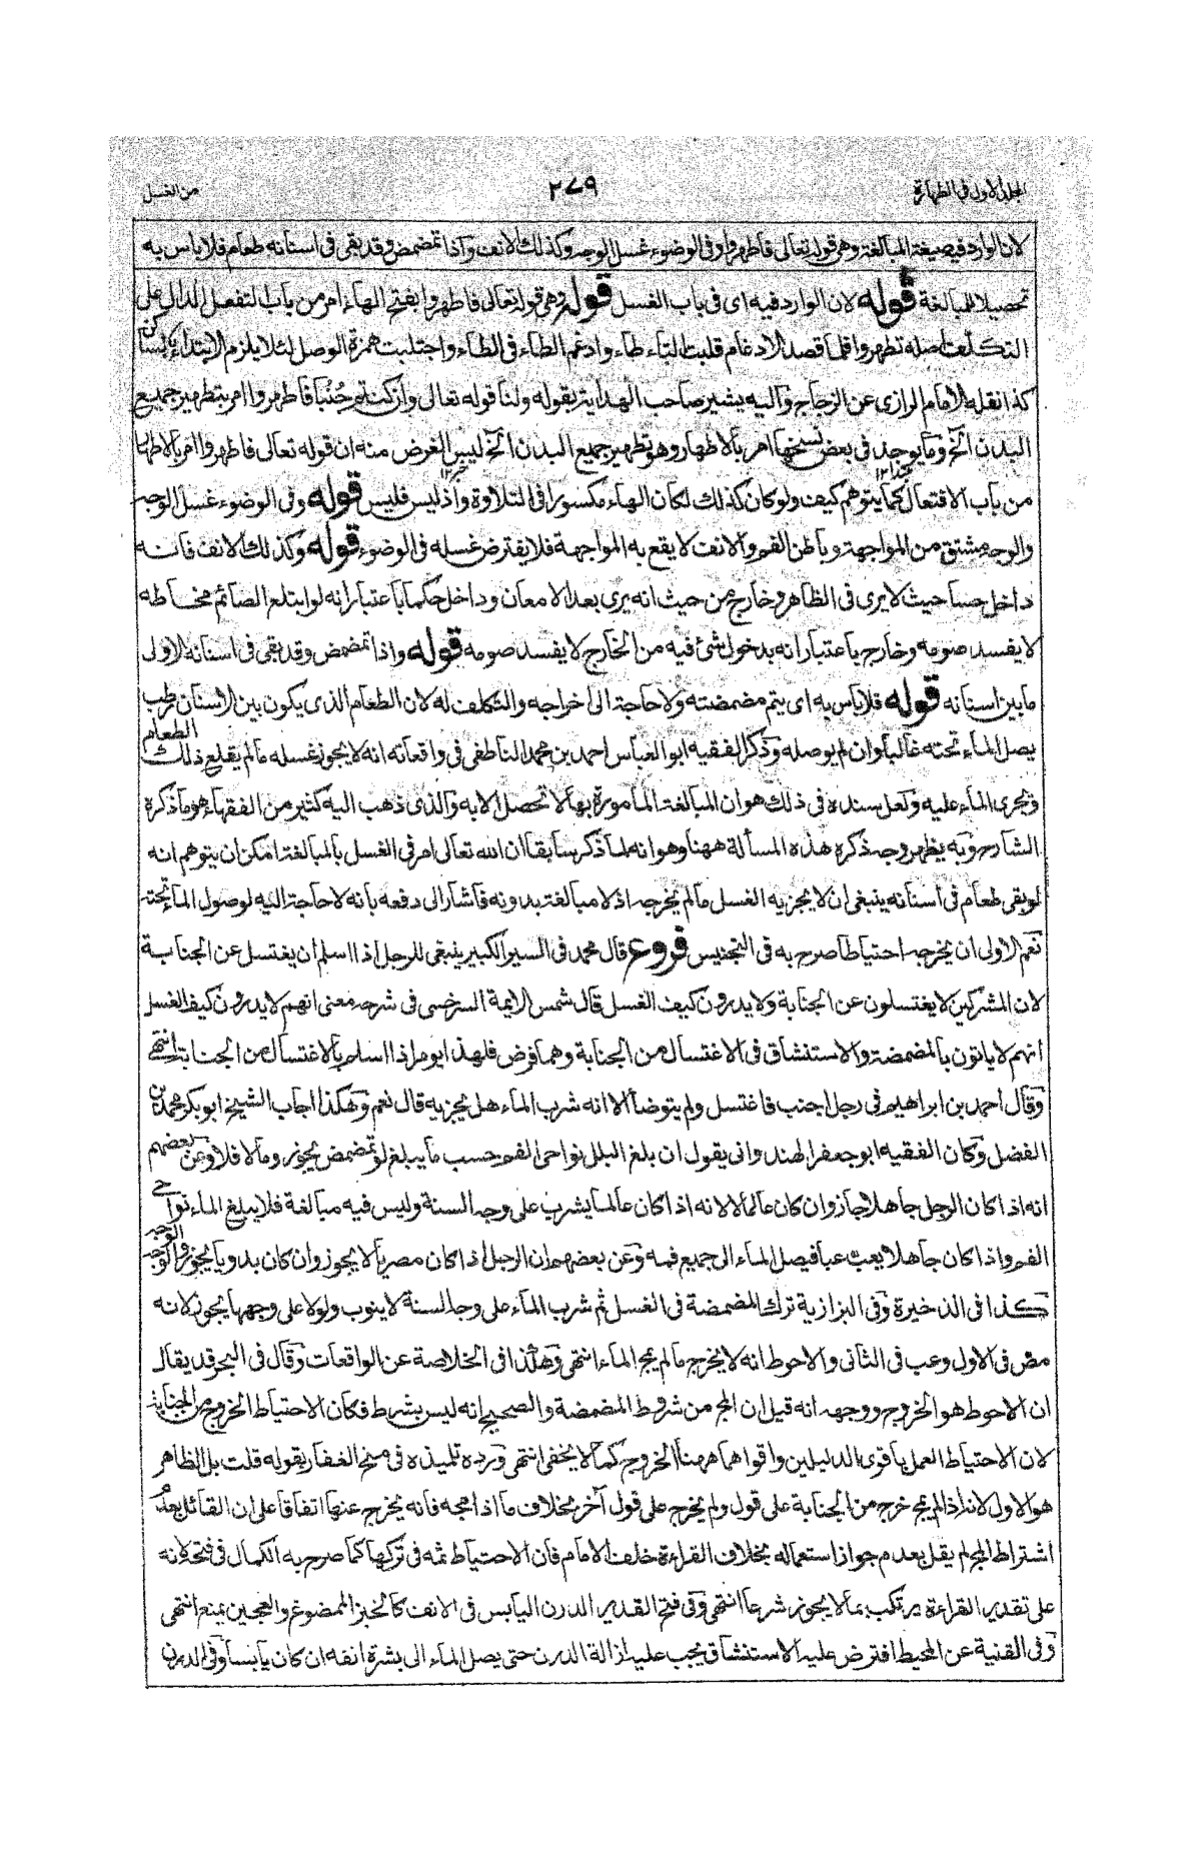 المجلد الاول فى الطهارة ٢٧٩ من الغسل
لان الوارد فيه صيغة المبالغة وهى قوله تعالى فاطهروا وفى الوضوء غسل الوجه وكذلك الانف واذا تمضمض وقد بقى فى اسنانه طعام فلا باس به
تحصيلا للمبالغة قوله لان الوارد فيه اى فى باب الغسل قوله وهى قوله تعالى فاطهروا بفتح الهاء امر من باب التفعل الدال على
التكلف اصله تطهروا فلما قصد الادغام قلبت التاء طاء وادغم الطاء فى الطاء واجتلبت همزة الوصل لئلا يلزم الابتداء بالساكن
كذا نقله الامام الرازى عن الزجاج واليه يشير صاحب الهداية بقوله ولنا قوله تعالى وان كنتم جنبا فاطهروا امر بتطهير جميع
البدن الخ وما يوجد فى بعض نسخها امر بالاطهار وهو تطهير جميع البدن الخ ليس الغرض منه ان قوله تعالى فاطهروا امر بالاطهار
من باب الافتعال كما يتوهم كيف ولو كان كذلك لكان الهاء مكسورا فى التلاوة واذ ليس فليس قوله وفى الوضوء غسل الوجه
والوجه مشتق من المواجهة وباطن الفم والانف لا يقع به المواجهة فلا يفترض غسله فى الوضوء قوله وكذلك الانف فانه
داخل حسا حيث لا يرى فى الظاهر وخارج من حيث انه يرى بعد الامعان وداخل حكما باعتبار انه لو ابتلع الصائم مخاطه
لا يفسد صومه وخارج باعتبار انه بدخول شئ فيه من الخارج لا يفسد صومه قوله واذا تمضمض وقد بقى فى اسنانه الاولى
ما بين اسنانه قوله فلا باس به اى يتم مضمضته ولا حاجة الى اخراجه والتكلف له لان الطعام الذى يكون بين الاسنان رطب
يصل الماء تحته غالبا وان لم يوصله وذكر الفقيه ابو العباس احمد بن محمد الناطفى فى واقعاته انه لا يجوز غسله ما لم يقلع ذلك الطعام
ويجرى الماء عليه ولعل سنده فى ذلك هو ان المبالغة المامورة بها لا تحصل الا به والذى ذهب اليه كثير من الفقهاء هو ما ذكره
الشارح وبه يظهر وجه ذكره هذه المسألة ههنا وهو انه لما ذكر سابقا ان الله تعالى امر فى الغسل بالمبالغة امكن ان يتوهم انه
لو بقى طعام فى اسنانه ينبغى ان لا يجزيه الغسل ما لم يخرجه اذ لا مبالغة بدونه فاشار الى دفعه بانه لا حاجة اليه لوصول الماء تحته
نعم الاولى ان يخرجه احتياطا صرح به فى التجنيس فروع قال محمد فى السير الكبير ينبغى للرجل اذا اسلم ان يغتسل عن الجنابة
لان المشركين لا يغتسلون عن الجنابة ولا يدرون كيف الغسل قال شمس الايمة السرخسى فى شرحه معنى انهم لا يدرون كيف الغسل
انهم لا ياتون بالمضمضة والاستنشاق فى الاغتسال من الجنابة وهما فرض فلهذا يومر اذا اسلم بالاغتسال من الجنابة انتهى
وقال احمد بن ابراهيم فى رجل اجنب فاغتسل ولم يتوضأ الا انه شرب الماء هل يجزيه قال نعم وهكذا اجاب الشيخ ابو بكر محمد بن
الفضل وكان الفقيه ابو جعفر الهندوانى يقول ان بلغ البلل نواحى الفم حسب ما يبلغ لو تمضمض يجوز وما لا فلا وعن بعضهم
انه اذا كان الرجل جاهلا جاز وان كان عالما لا لانه اذا كان عالما يشرب على وجه السنة وليس فيه مبالغة فلا يبلغ الماء نواحى
الفم واذا كان جاهلا يعب عبا فيصل الماء الى جميع فمه وعن بعضهم ان الرجل اذا كان مصريا لا يجوز وان كان بدويا يجوز والوجه الوجه
كذا فى الذخيرة وفى البزازية ترك المضمضة فى الغسل ثم شرب الماء على وجه السنة لا ينوب ولو لا على وجهها يجوز لانه
مص فى الاول وعب فى الثانى والاحوط انه لا يخرج ما لم يمج الماء انتهى وهكذا فى الخلاصة عن الواقعات وقال فى البحر قد يقال
ان الاحوط هو الخروج ووجهه انه قيل ان المج من شروط المضمضة والصحيح انه ليس بشرط فكان الاحتياط الخروج من الجنابة
لان الاحتياط العمل باقوى الدليلين واقواهما ههنا الخروج كما لا يخفى انتهى ورده تلميذه فى منح الغفار بقوله قلت بل الظاهر
هو الاول لانه اذا لم يمج خرج من الجنابة على قول ولم يخرج على قول آخر بخلاف ما اذا مجه فانه يخرج عنها اتفاقا على ان القائل بعدم
اشتراط المج لم يقل بعدم جواز استعماله بخلاف القراءة خلف الامام فان الاحتياط ثمه فى تركها كما صرح به الكمال فى فتحه لانه
على تقدير القراءة يرتكب بما لا يجوز شرعا انتهى وفى فتح القدير الدرن اليابس فى الانف كالخبز الممضوغ والعجين يمنع انتهى
وفى القنية عن المحيط افترض عليه الاستنشاق يجب عليه ازالة الدرن حتى يصل الماء الى بشرة انفه ان كان يابسا وفى الدرن